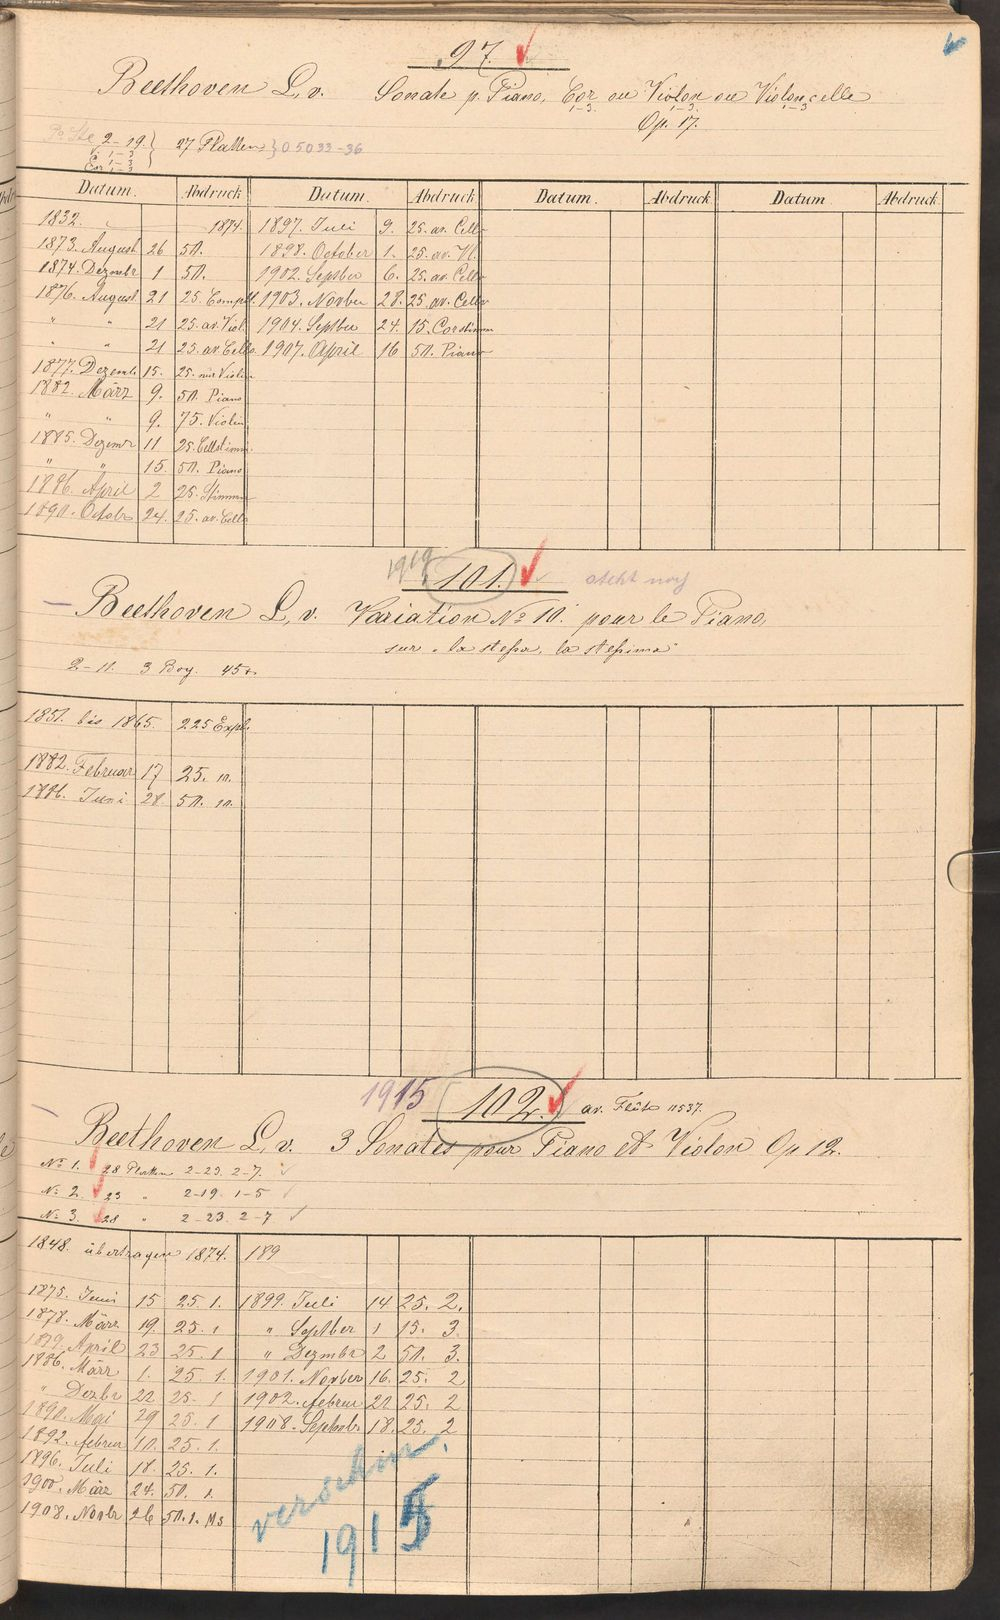 97.
Beethoven L. v. Sonate p. Piano, Cor ou Violon ou Violoncelle
1-3 1-3 1-3
Op. 17.
2-19.
V. 1-3 27 Platten 05033-36
C. 1-3
Cor 1-3
Datum. Abdruck Datum. Abdruck Datum. Abdruck Datum Abdruck
1832. 1874. 1897. Juli 9. 25. av. Cello
1873. August 26 50. 1898. October 1. 25. av. Vl.
1874. Dezembr 1 50. 1902. Septber 6. 25. av. Cello
1876. August 21 25. Complt. 1903. Novber 28. 25 av. Cello
" " 21 25. av. Viol. 1904. Septber 24. 15. Corstimm
" " 21 25. av. Cello. 1907. April 16 50. Piano
1877. Dezemb. 15. 25. nur Violin
1882. März 9. 50. Piano
" " 9. 75. Violin
1885. Dezembr 11 25. Cellstimm.
" " 15. 50. Piano
1886. April 2 25. Stimmen
1890. Octobr 24. 25. av. Cello
1919. 101.
Beethoven L. v. Variation No 10. pour le Piano,
sur "la stessa, la stessima"
2-11. 3 Bog. 45
1851. bis 1865. 225 Expl.
1882. Februar 17 25. n.
1886. Juni 28. 50. n.
1915 102. av. Flûte 11537.
Beethoven L. v. 3 Sonates pour Piano et Violon Op 12.
No 1. 28 Platten 2-23. 2-7.
No 2. 23 " 2-19. 1-5
No 3. 28 " 2-23. 2-7
1848. übertragen 1874. 189
1875. Juni 15 25. 1. 1899. Juli 14 25. 2.
1878. März 19. 25. 1 " Septber 1 15. 3.
1879. April 23 25. 1 " Dezmbr 2 50. 3.
1886. März 1. 25. 1. 1901. Novber 16. 25. 2
" Dezbr 22 25. 1 1902. Februar 22 25. 2
1890. Mai 29 25. 1 1908. Septmb. 18. 25. 2
1892. Februar 10. 25. 1.
1896. Juli 18. 25. 1.
1900. März 24. 50. 1.
1908. Novbr 26 50. 1. Ms
verschm.
1915